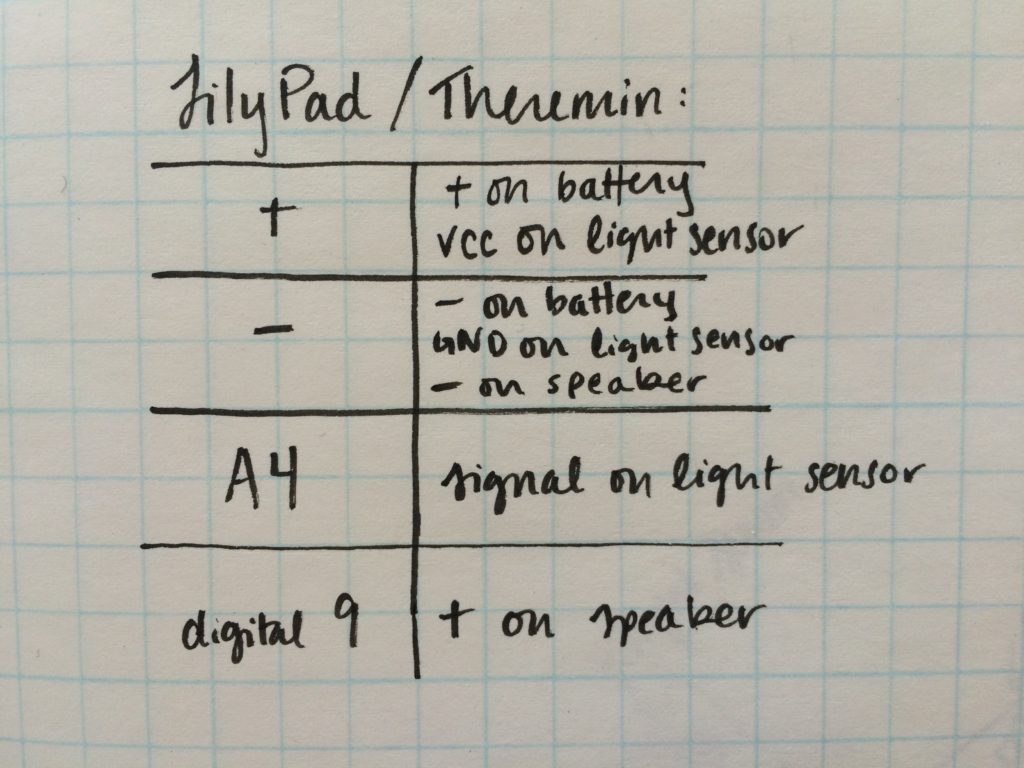 LilyPad / Theremin:
+
+ on battery
VCC on light sensor
-
- on battery
GND on light sensor
- on speaker
A4
signal on light sensor
digital 9
+ on speaker